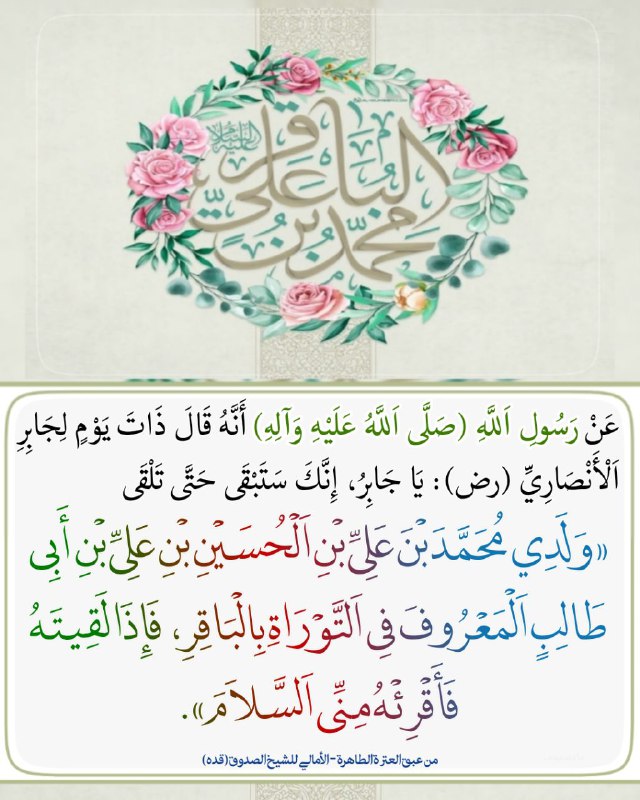 محمد بن علي الباقر
عَنْ رَسُولِ اَللَّهِ (صَلَّى اَللَّهُ عَلَيْهِ وَآلِهِ) أَنَّهُ قَالَ ذَاتَ يَوْمٍ لِجَابِرِ
اَلْأَنْصَارِيِّ (رض): يَا جَابِرُ، إِنَّكَ سَتَبْقَى حَتَّى تَلْقَى
«وَلَدِي مُحَمَّدَ بْنَ عَلِيِّ بْنِ اَلْحُسَيْنِ بْنِ عَلِيِّ بْنِ أَبِي
طَالِبٍ اَلْمَعْرُوفَ فِي اَلتَّوْرَاةِ بِالْبَاقِرِ، فَإِذَا لَقِيتَهُ
فَأَقْرِئْهُ مِنِّي اَلسَّلاَمَ».
من عبق العترة الطاهرة - الأمالي للشيخ الصدوق (قده)